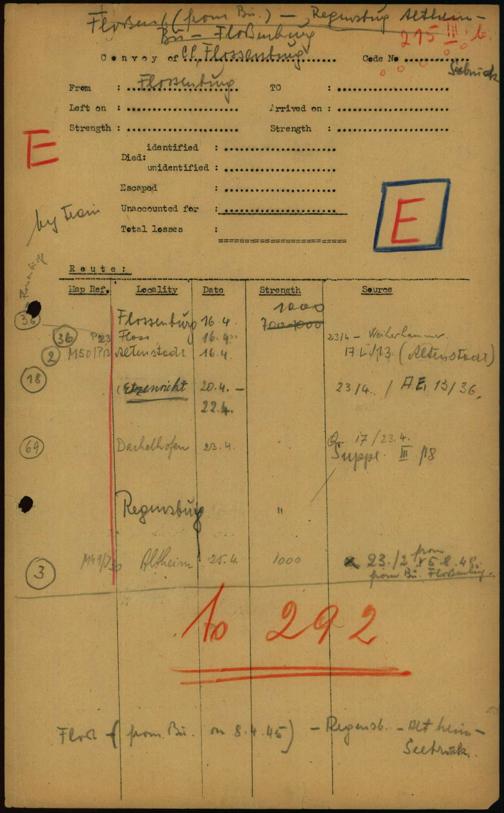 Flossenb. (from Bu.) – Regensburg Altheim –
Bu – Flossenburg
215 III b.
Convoy of CC Flossenburg Code No
Seebruck
From : Flossenburg TO :
Left on : Arrived on :
Strength : Strength :
E
identified :
Died:
unidentified :
Escaped :
E
by train
Unaccounted for :
Total losses :
Route:
Map Ref. Locality Date Strength Source
1000
36 Flossenburg 16.4. 700-1000
36 P23 Floss 16.4. 23/4 - Weiherhammer
2 M50/P13 Altenstadt 16.4. (Altenstadt)
18 (Etzenricht 20.4. – 23/4 / AE, 13/36,
22.4.
69 Dachelhofen 23.4. 17/23.4.
Suppl. III p8
Regensburg "
3 Altheim 25.4. 1000 23./2 from
from Bu. Flossenburg
to 292
Floss – (from Bu. on 8.4.45) – Regensb. – Altheim –
Seebruck.